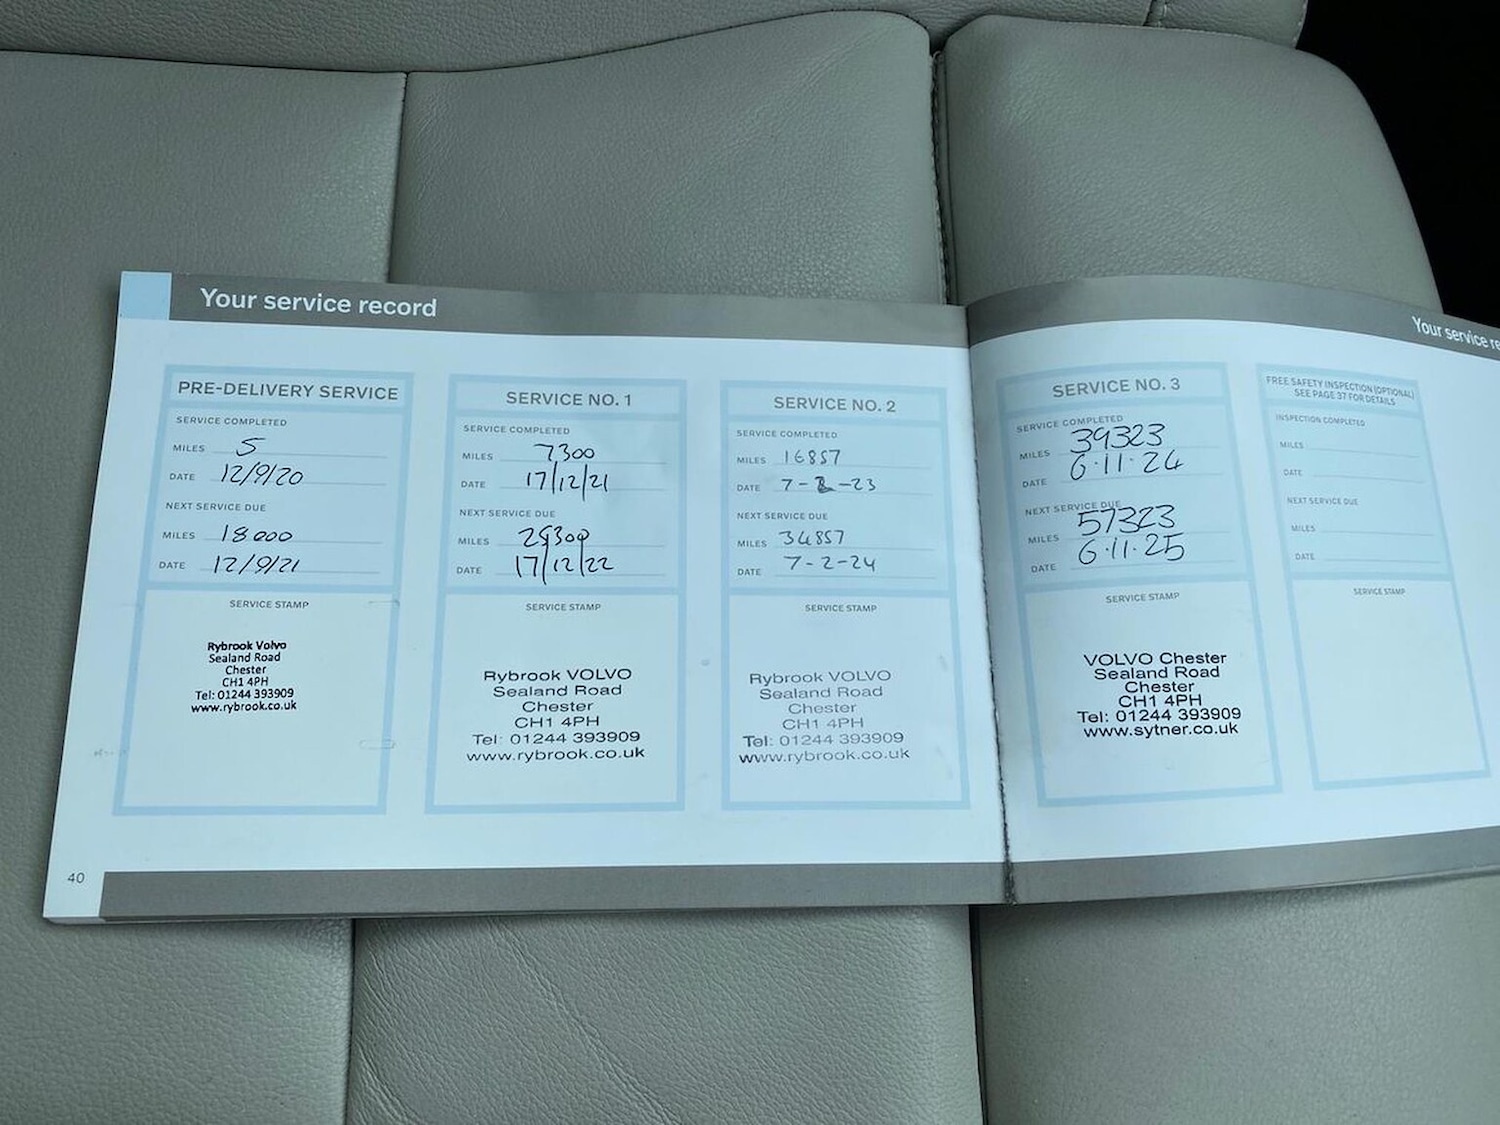 Your service record
PRE-DELIVERY SERVICE
SERVICE COMPLETED
MILES 5
DATE 12/9/20
NEXT SERVICE DUE
MILES 18000
DATE 12/9/21
SERVICE STAMP
Rybrook Volvo
Sealand Road
Chester
CH1 4PH
Tel: 01244 393909
www.rybrook.co.uk
SERVICE NO. 1
SERVICE COMPLETED
MILES 7300
DATE 17/12/21
NEXT SERVICE DUE
MILES 25300
DATE 17/12/22
SERVICE STAMP
Rybrook VOLVO
Sealand Road
Chester
CH1 4PH
Tel: 01244 393909
www.rybrook.co.uk
SERVICE NO. 2
SERVICE COMPLETED
MILES 16857
DATE 7-2-23
NEXT SERVICE DUE
MILES 34857
DATE 7-2-24
SERVICE STAMP
Rybrook VOLVO
Sealand Road
Chester
CH1 4PH
Tel: 01244 393909
www.rybrook.co.uk
40
Your service re
SERVICE NO. 3
SERVICE COMPLETED
MILES 39323
DATE 6.11.24
NEXT SERVICE DUE
MILES 57323
DATE 6.11.25
SERVICE STAMP
VOLVO Chester
Sealand Road
Chester
CH1 4PH
Tel: 01244 393909
www.sytner.co.uk
FREE SAFETY INSPECTION (OPTIONAL)
SEE PAGE 37 FOR DETAILS
INSPECTION COMPLETED
MILES
DATE
NEXT SERVICE DUE
MILES
DATE
SERVICE STAMP